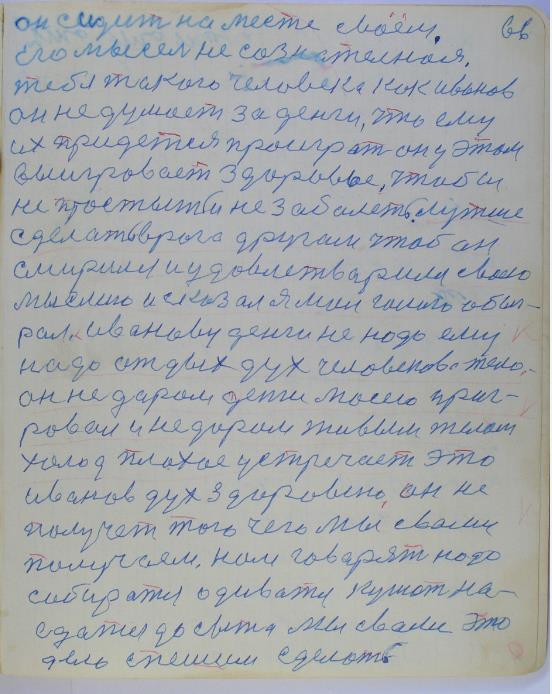 он сидит на месте своём. 66
Его мысел не сознателноя,
тебя такого человека кок иванов
он не думоет за деньги, что ему
их придется проиграт он у этом
выигровает здоровье, чтобы
не простыть и не заболеть. Лутше
сделать врага другам чтоб он
смирился и удовлетварился своею
мыслию и сказал я мол гошлого обыг-
рал, иванову денги не нодо ему
надо отдых дух человеков тело,
он не даром дети мосею приг-
ровол и недором живым телом
холод плохое устречает это
иванов дух здоровено, он не
получет того чего мы свами
получаем. ном говарят нодо
собиратся одиватся кушот на-
едатся до сыта мы свами это
дело спешим сделоть